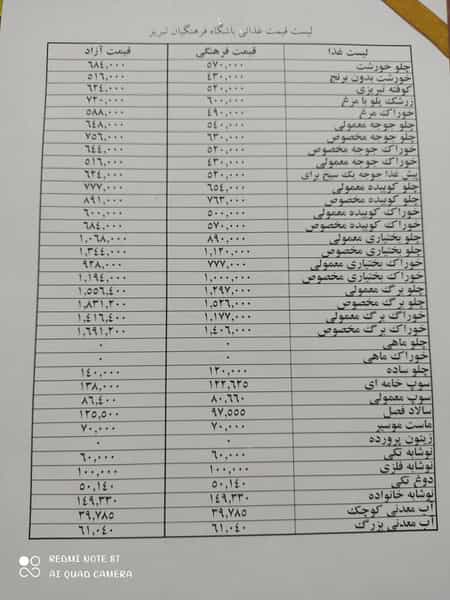 لیست قیمت غذائی باشگاه فرهنگیان تبریز
لیست غذا قیمت فرهنگی قیمت آزاد
چلو خورشت ۵۷۰,۰۰۰ ۶۸٤,۰۰۰
خورشت بدون برنج ٤۳۰,۰۰۰ ۵۱۶,۰۰۰
کوفته تبریزی ۵۲۰,۰۰۰ ۶۲٤,۰۰۰
زرشک پلو با مرغ ۶۰۰,۰۰۰ ۷۲۰,۰۰۰
خوراک مرغ ٤۹۰,۰۰۰ ۵۸۸,۰۰۰
چلو جوجه معمولی ۵٤۰,۰۰۰ ۶٤۸,۰۰۰
چلو جوجه مخصوص ۶۳۰,۰۰۰ ۷۵۶,۰۰۰
خوراک جوجه مخصوص ۵۲۰,۰۰۰ ۶٤٤,۰۰۰
خوراک جوجه معمولی ٤۳۰,۰۰۰ ۵۱۶,۰۰۰
پیش غذا جوجه یک سیخ برای ۵۲۰,۰۰۰ ۶۲٤,۰۰۰
چلو کوبیده معمولی ۶۵٤,۰۰۰ ۷۷۷,۰۰۰
چلو کوبیده مخصوص ۷۶۳,۰۰۰ ۸۹۱,۰۰۰
خوراک کوبیده معمولی ۵۰۰,۰۰۰ ۶۰۰,۰۰۰
خوراک کوبیده مخصوص ۵۷۰,۰۰۰ ۶۸٤,۰۰۰
چلو بختیاری معمولی ۸۹۰,۰۰۰ ۱,۰۶۸,۰۰۰
چلو بختیاری مخصوص ۱,۱۲۰,۰۰۰ ۱,۳٤٤,۰۰۰
خوراک بختیاری معمولی ۷۷۷,۰۰۰ ۹۲۸,۰۰۰
خوراک بختیاری مخصوص ۱,۰۰۰,۰۰۰ ۱,۱۹٤,۰۰۰
چلو برگ معمولی ۱,۲۹۷,۰۰۰ ۱,۵۵۶,٤۰۰
چلو برگ مخصوص ۱,۵۲۶,۰۰۰ ۱,۸۳۱,۲۰۰
خوراک برگ معمولی ۱,۱۷۷,۰۰۰ ۱,٤۱۶,٤۰۰
خوراک برگ مخصوص ۱,٤۰۶,۰۰۰ ۱,۶۹۱,۲۰۰
چلو ماهی ۰ ۰
خوراک ماهی ۰ ۰
چلو ساده ۱۲۰,۰۰۰ ۱٤۰,۰۰۰
سوپ خامه ای ۱۲۲,۶۲۵ ۱۳۸,۰۰۰
سوپ معمولی ۸۰,۶۶۰ ۸۶,٤۰۰
سالاد فصل ۹۷,۵۵۵ ۱۲۵,۵۰۰
ماست موسیر ۷۰,۰۰۰ ۷۰,۰۰۰
زیتون پرورده ۰ ۰
نوشابه تکی ۶۰,۰۰۰ ۶۰,۰۰۰
نوشابه فلزی ۱۰۰,۰۰۰ ۱۰۰,۰۰۰
دوغ تکی ۵۰,۱٤۰ ۵۰,۱٤۰
نوشابه خانواده ۱٤۹,۳۳۰ ۱٤۹,۳۳۰
آب معدنی کوچک ۳۹,۷۸۵ ۳۹,۷۸۵
آب معدنی بزرگ ۶۱,۰٤۰ ۶۱,۰٤۰
REDMI NOTE 8T
AI QUAD CAMERA